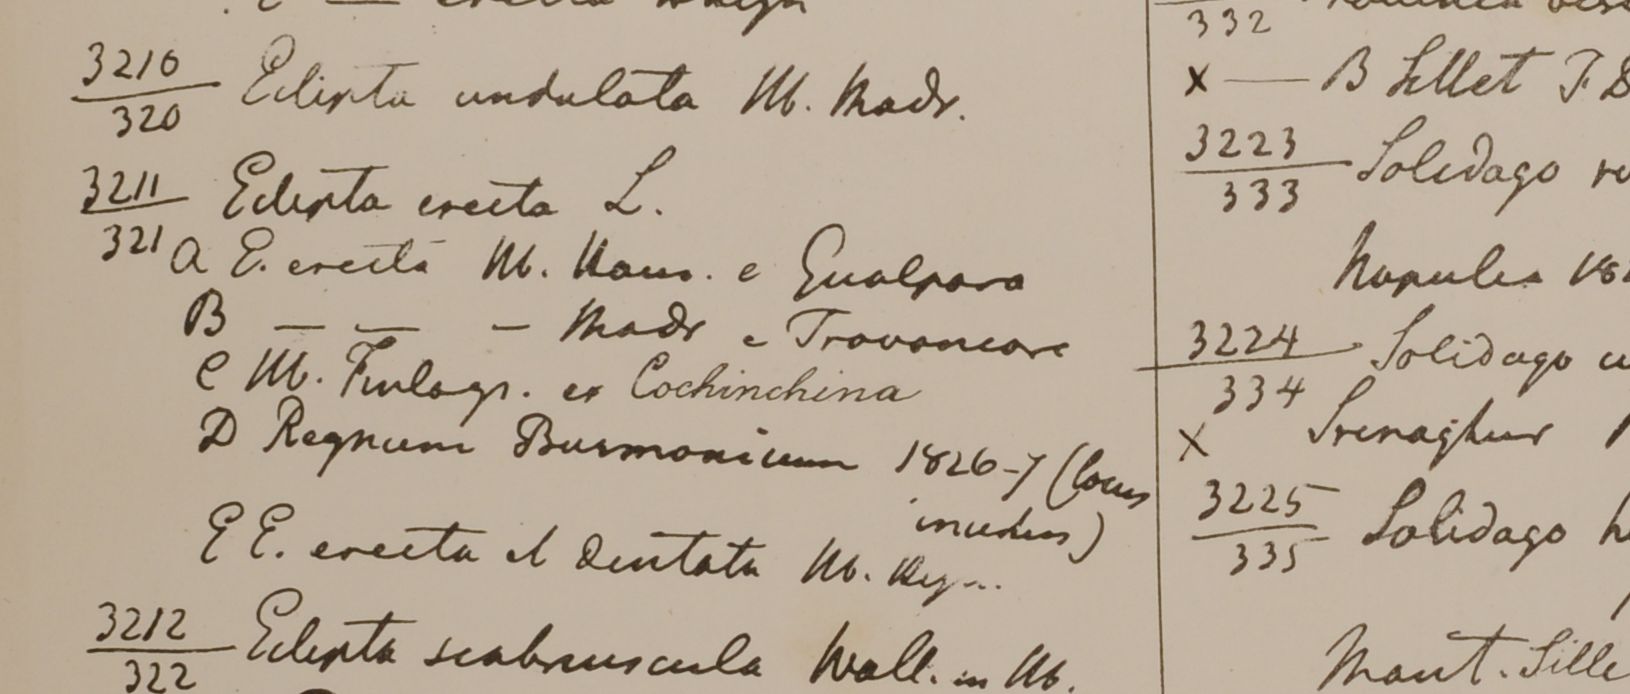 3210
320 Eclipta undulata Hb. Madr.
3211 Eclipta erecta L.
321 A E. erecta Hb. Ham. e Gualpara
B — — — Madr e Travancore
C Hb. Finlays. ex Cochinchina
D Regnum Burmanicum 1826-7 (locus
incertus)
E E. erecta et dentata Hb. Heyn..
3212 Eclipta scabriuscula Wall. in Hb.
322
332
x — B Sillet F.D
3223 Solidago
333
Napulia 18
3224 Solidago
334
x Srenaghur
3225 Solidago
335
Mont. Sille